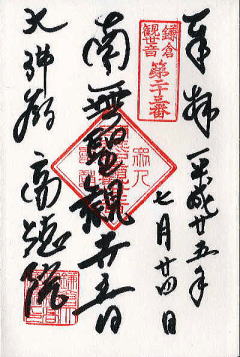 奉拝 平成廿五年
七月廿四日
鎌倉
観世音
第二十三番
南無聖観世音
大佛殿 高徳院